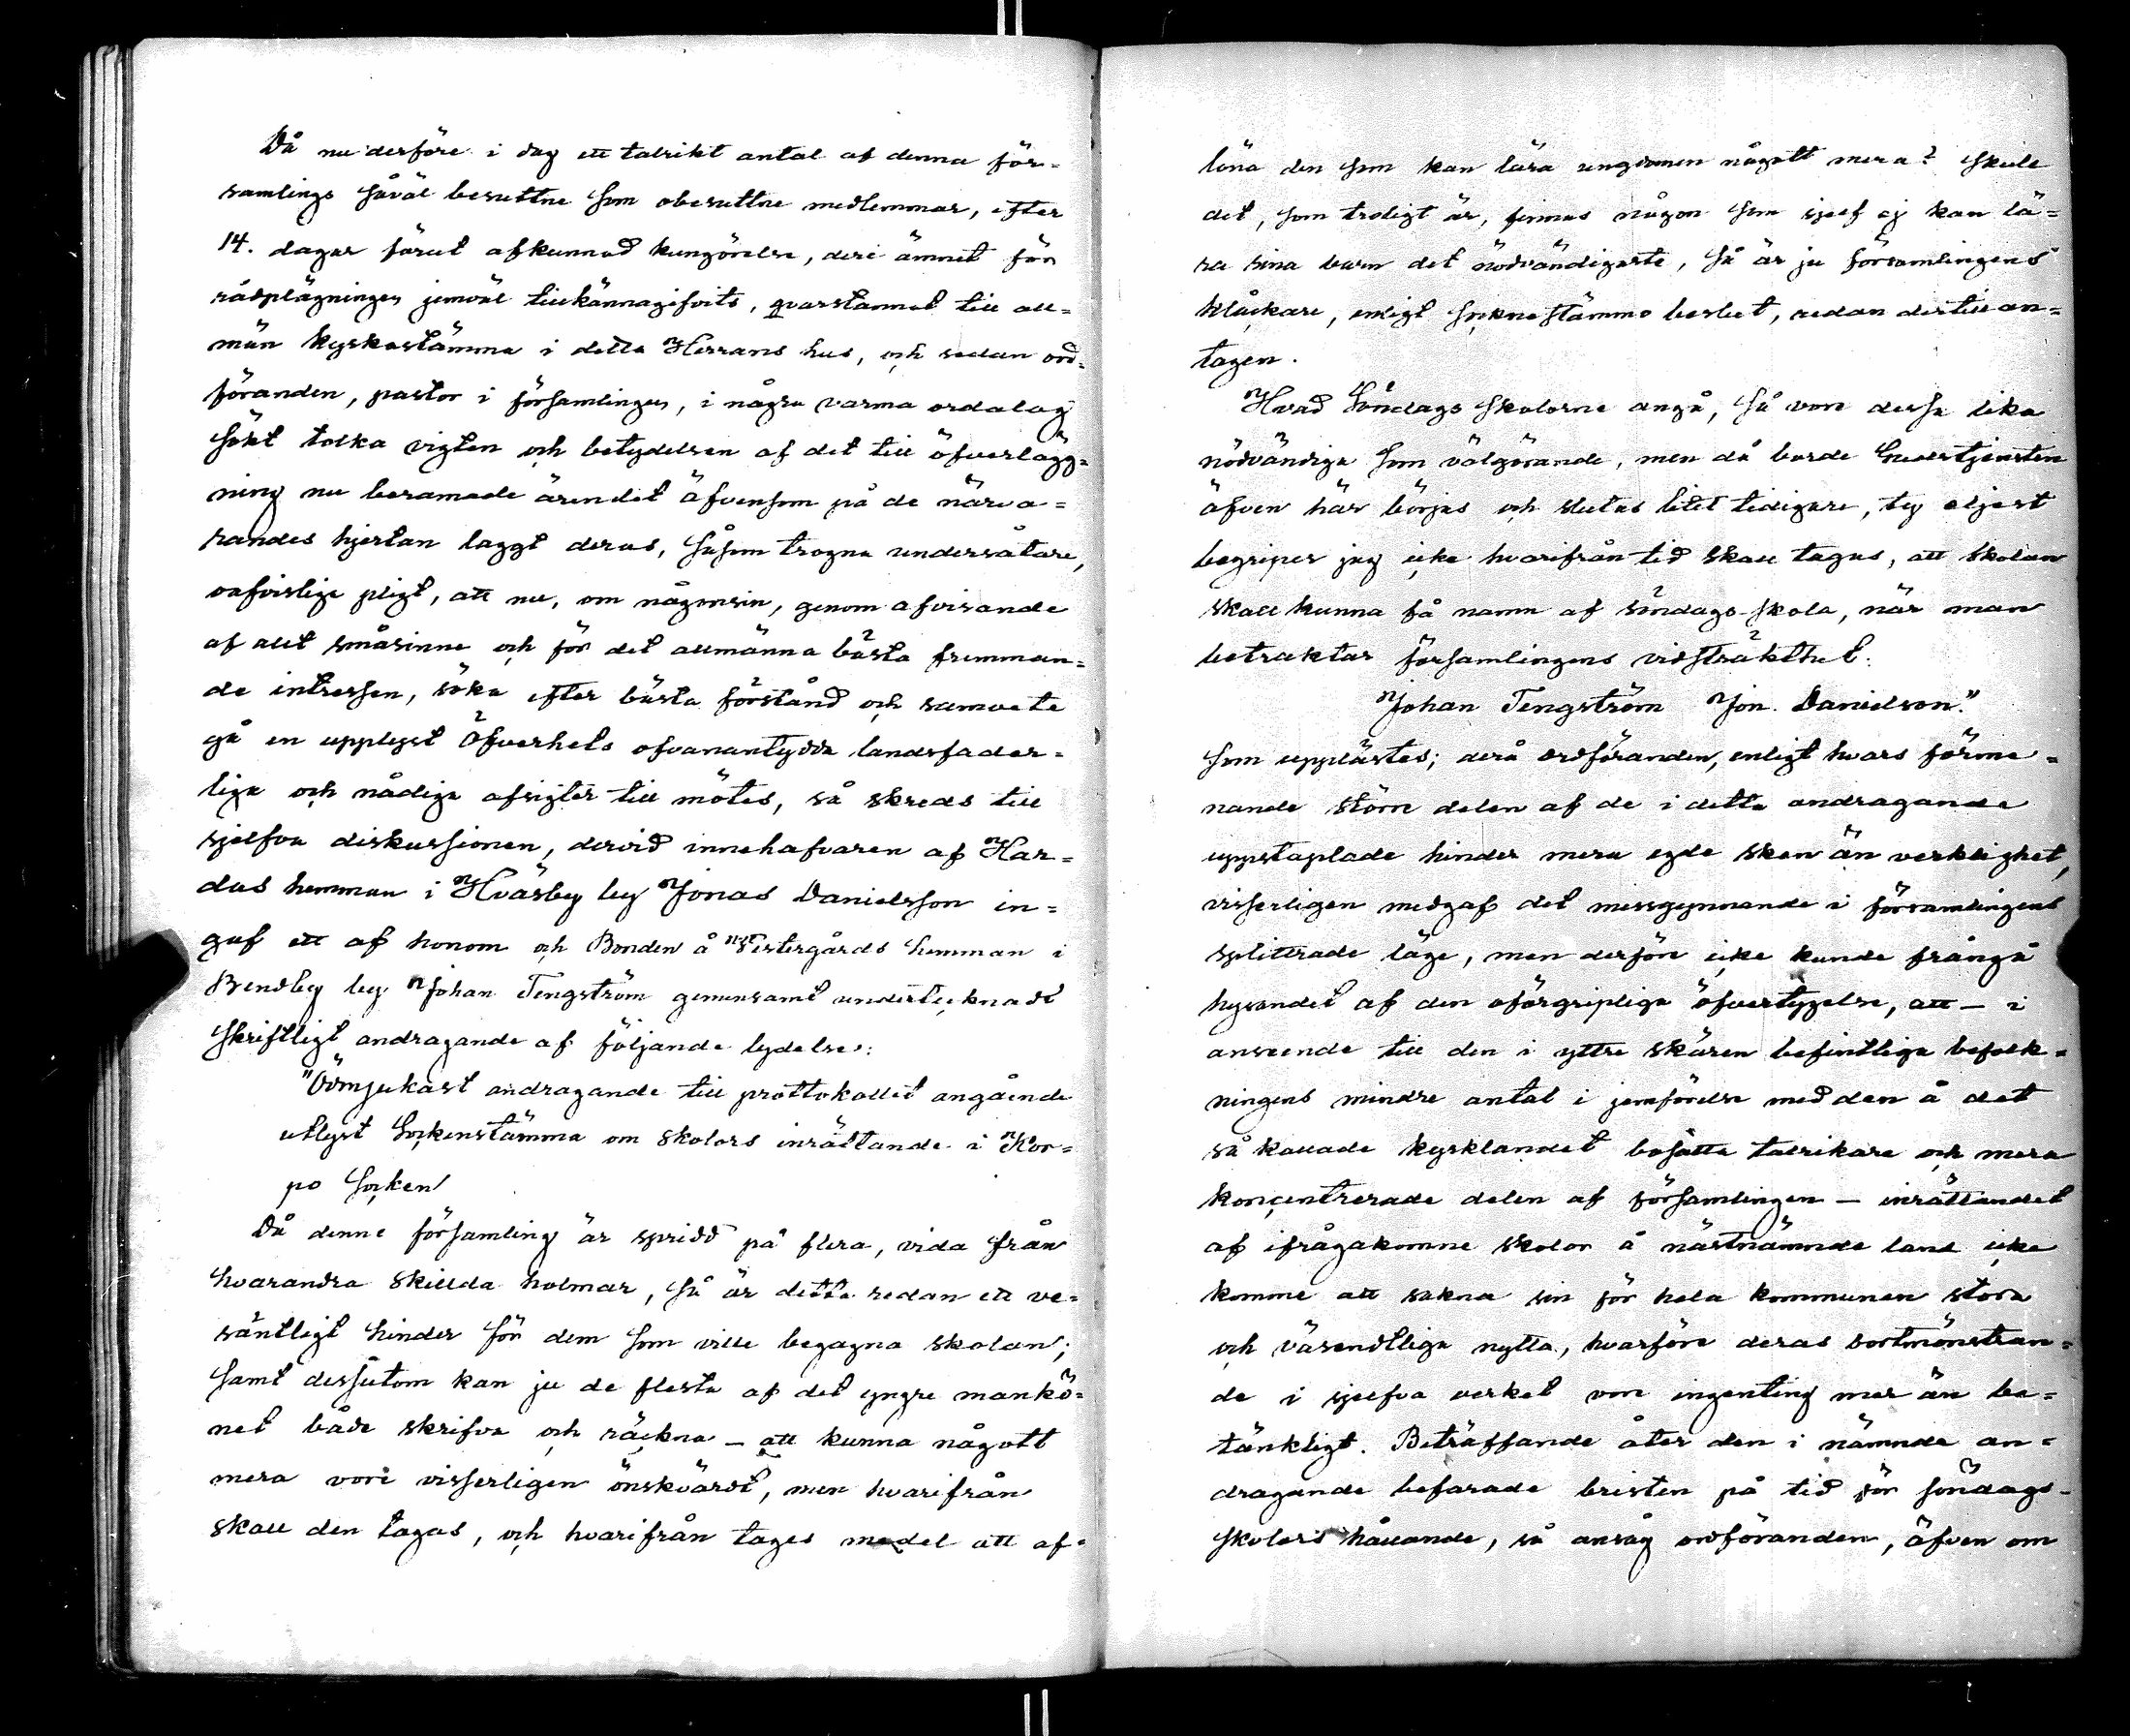 Då nu derföre i dag ett talrikt antal af denna för-
samlings såväl besuttne som obesuttne medlemmar, efter
14. dagar förut afkunnad kungörelse, deri ämnet för
rådplägningen jemväl tillkännagifvits, qvarstannat till all-
män kyrkostämma i detta Herrans hus, och sedan ord-
föranden, pastor i församlingen, i några varma ordalag
sökt tolka vigten och betydelsen af det till öfverlägg-
ning nu beramade ärendet äfvensom på de närva-
randes hjertan laggt deras, såsom trogna undersåtare,
oafvislige pligt, att nu, om någonsin, genom afvisande
af allt småsinne och för det allmänna bästa fremman-
de intressen, söka efter bästa förstånd och samvete
gå en upplyst Öfverhets ofvanantydda landsfader-
liga och nådiga afsigter till mötes, så skreds till
sjelfva diskussionen, dervid innehafvaren af Har-
das hemman i Hväsby by Jonas Danielsson in-
gaf ett af honom och Bonden å Westergårds hemman i
Bendby by Johan Tengström gemensamt undertecknadt
skriftligt andragande af följande lydelse:
"Ödmjukast andragande till prottokollet angående
utlyst Sockenstämma om skolors inrättande i Kor-
po socken
Då denne församling är spridd på flera, vida från
hvarandra skillda holmar, så är detta redan ett ve-
säntligt hinder för dem som ville begagna skolan;
samt dessutom kan ju de flesta af det yngre mankö-
net både skrifva och räckna – att kunna någott
mera vore visserligen önskvärdt, men hvarifrån
skall den tagas, och hvarifrån tages medel att af-
löna den som kan lära ungdomen någott mera? Skule
det, som troligt är, finnas någon som sjelf ej kan lä-
ra sina barn det nödvändigaste, så är ju församlingens
klåckare, enligt sockne stämmo beslut, redan dertill an-
tagen.
Hvad Söndags skolorne angå, så vore dessa lika
nödvändiga som välgörande, men då borde Gudstjensten
äfven här börjas och slutas litet tidigare, ty eljest
begriper jag icke hvarifrån tid skall tagas, att skolan
skall kunna få namn af söndags-skola, när man
betraktar församlingens vidsträkthet.
Johan Tengström Jon. Danielson."
Som upplästes; derå ordföranden, enligt hvars förme-
nande större delen af de i detta andragande
uppstaplade hinder mera egde sken än verklighet,
visserligen medgaf det missgynnande i församlingens
splittrade läge, men derför icke kunde frångå
hysandet af den oförgripliga öfvertygelse, att – i
anseende till den i yttre skären befintliga befolk-
ningens mindre antal i jemförelse med den å det
så kallade kyrklandet bosatta talrikare och mera
koncentrerade delen af församlingen – inrättandet
af ifrågakomne skolor å nästnämnde land icke
komme att sakna sin för hela kommunen stora
och väsendtliga nytta, hvarföre deras bortmönstran-
de i sjelfva verket vore ingenting mer än be-
tänkligt. Beträffande åter den i nämnde an-
dragande befarade bristen på tid för söndags-
skolors hållande, så ansåg ordföranden, äfven om